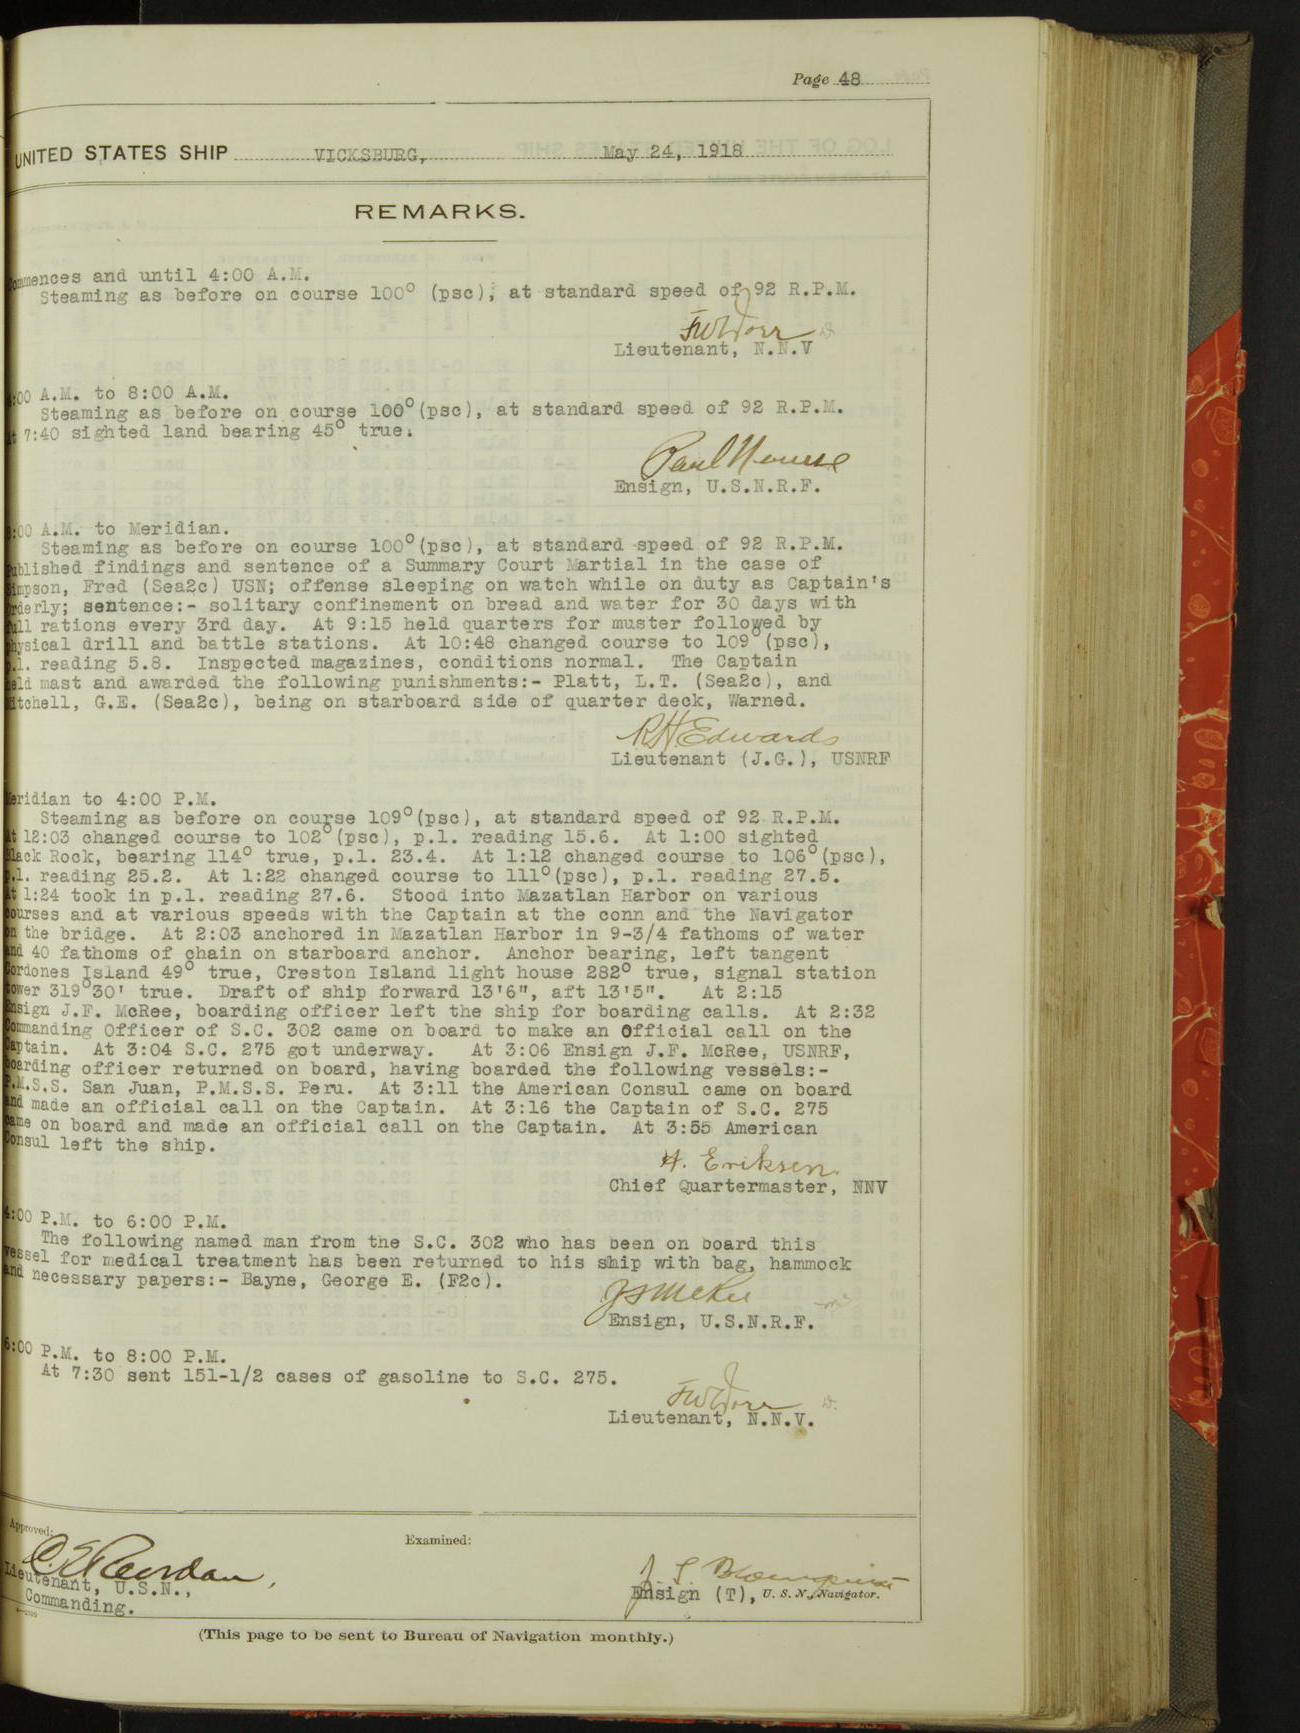 Page 48
UNITED STATES SHIP VICKSBURG, May 24, 1918
REMARKS.
Commences and until 4:00 A.M.
Steaming as before on course 100° (psc), at standard speed of 92 R.P.M.
Lieutenant, N.N.V
4:00 A.M. to 8:00 A.M.
Steaming as before on course 100°(psc), at standard speed of 92 R.P.M.
At 7:40 sighted land bearing 45° true.
Ensign, U.S.N.R.F.
8:00 A.M. to Meridian.
Steaming as before on course 100°(psc), at standard speed of 92 R.P.M.
Published findings and sentence of a Summary Court Martial in the case of
Simpson, Fred (Sea2c) USN; offense sleeping on watch while on duty as Captain's
orderly; sentence:- solitary confinement on bread and water for 30 days with
full rations every 3rd day. At 9:15 held quarters for muster followed by
physical drill and battle stations. At 10:48 changed course to 109°(psc),
p.l. reading 5.8. Inspected magazines, conditions normal. The Captain
held mast and awarded the following punishments:- Platt, L.T. (Sea2c), and
Mitchell, G.E. (Sea2c), being on starboard side of quarter deck, Warned.
R H Edwards
Lieutenant (J.G.), USNRF
Meridian to 4:00 P.M.
Steaming as before on course 109°(psc), at standard speed of 92 R.P.M.
At 12:03 changed course to 102°(psc), p.l. reading 15.6. At 1:00 sighted
Black Rock, bearing 114° true, p.l. 23.4. At 1:12 changed course to 106°(psc),
p.l. reading 25.2. At 1:22 changed course to 111°(psc), p.l. reading 27.5.
At 1:24 took in p.l. reading 27.6. Stood into Mazatlan Harbor on various
courses and at various speeds with the Captain at the conn and the Navigator
on the bridge. At 2:03 anchored in Mazatlan Harbor in 9-3/4 fathoms of water
and 40 fathoms of chain on starboard anchor. Anchor bearing, left tangent
Cordones Island 49° true, Creston Island light house 282° true, signal station
tower 319°30' true. Draft of ship forward 13'6", aft 13'5". At 2:15
Ensign J.F. McRee, boarding officer left the ship for boarding calls. At 2:32
Commanding Officer of S.C. 302 came on board to make an Official call on the
Captain. At 3:04 S.C. 275 got underway. At 3:06 Ensign J.F. McRee, USNRF,
boarding officer returned on board, having boarded the following vessels:-
P.M.S.S. San Juan, P.M.S.S. Peru. At 3:11 the American Consul came on board
and made an official call on the Captain. At 3:16 the Captain of S.C. 275
came on board and made an official call on the Captain. At 3:55 American
Consul left the ship.
H. Eriksen
Chief Quartermaster, NNV
4:00 P.M. to 6:00 P.M.
The following named man from the S.C. 302 who has been on board this
vessel for medical treatment has been returned to his ship with bag, hammock
and necessary papers:- Bayne, George E. (F2c).
Ensign, U.S.N.R.F.
6:00 P.M. to 8:00 P.M.
At 7:30 sent 151-1/2 cases of gasoline to S.C. 275.
Lieutenant, N.N.V.
Approved:
Examined:
Lieutenant, U.S.N.,
Commanding.
Ensign (T), U. S. N., Navigator.
(This page to be sent to Bureau of Navigation monthly.)